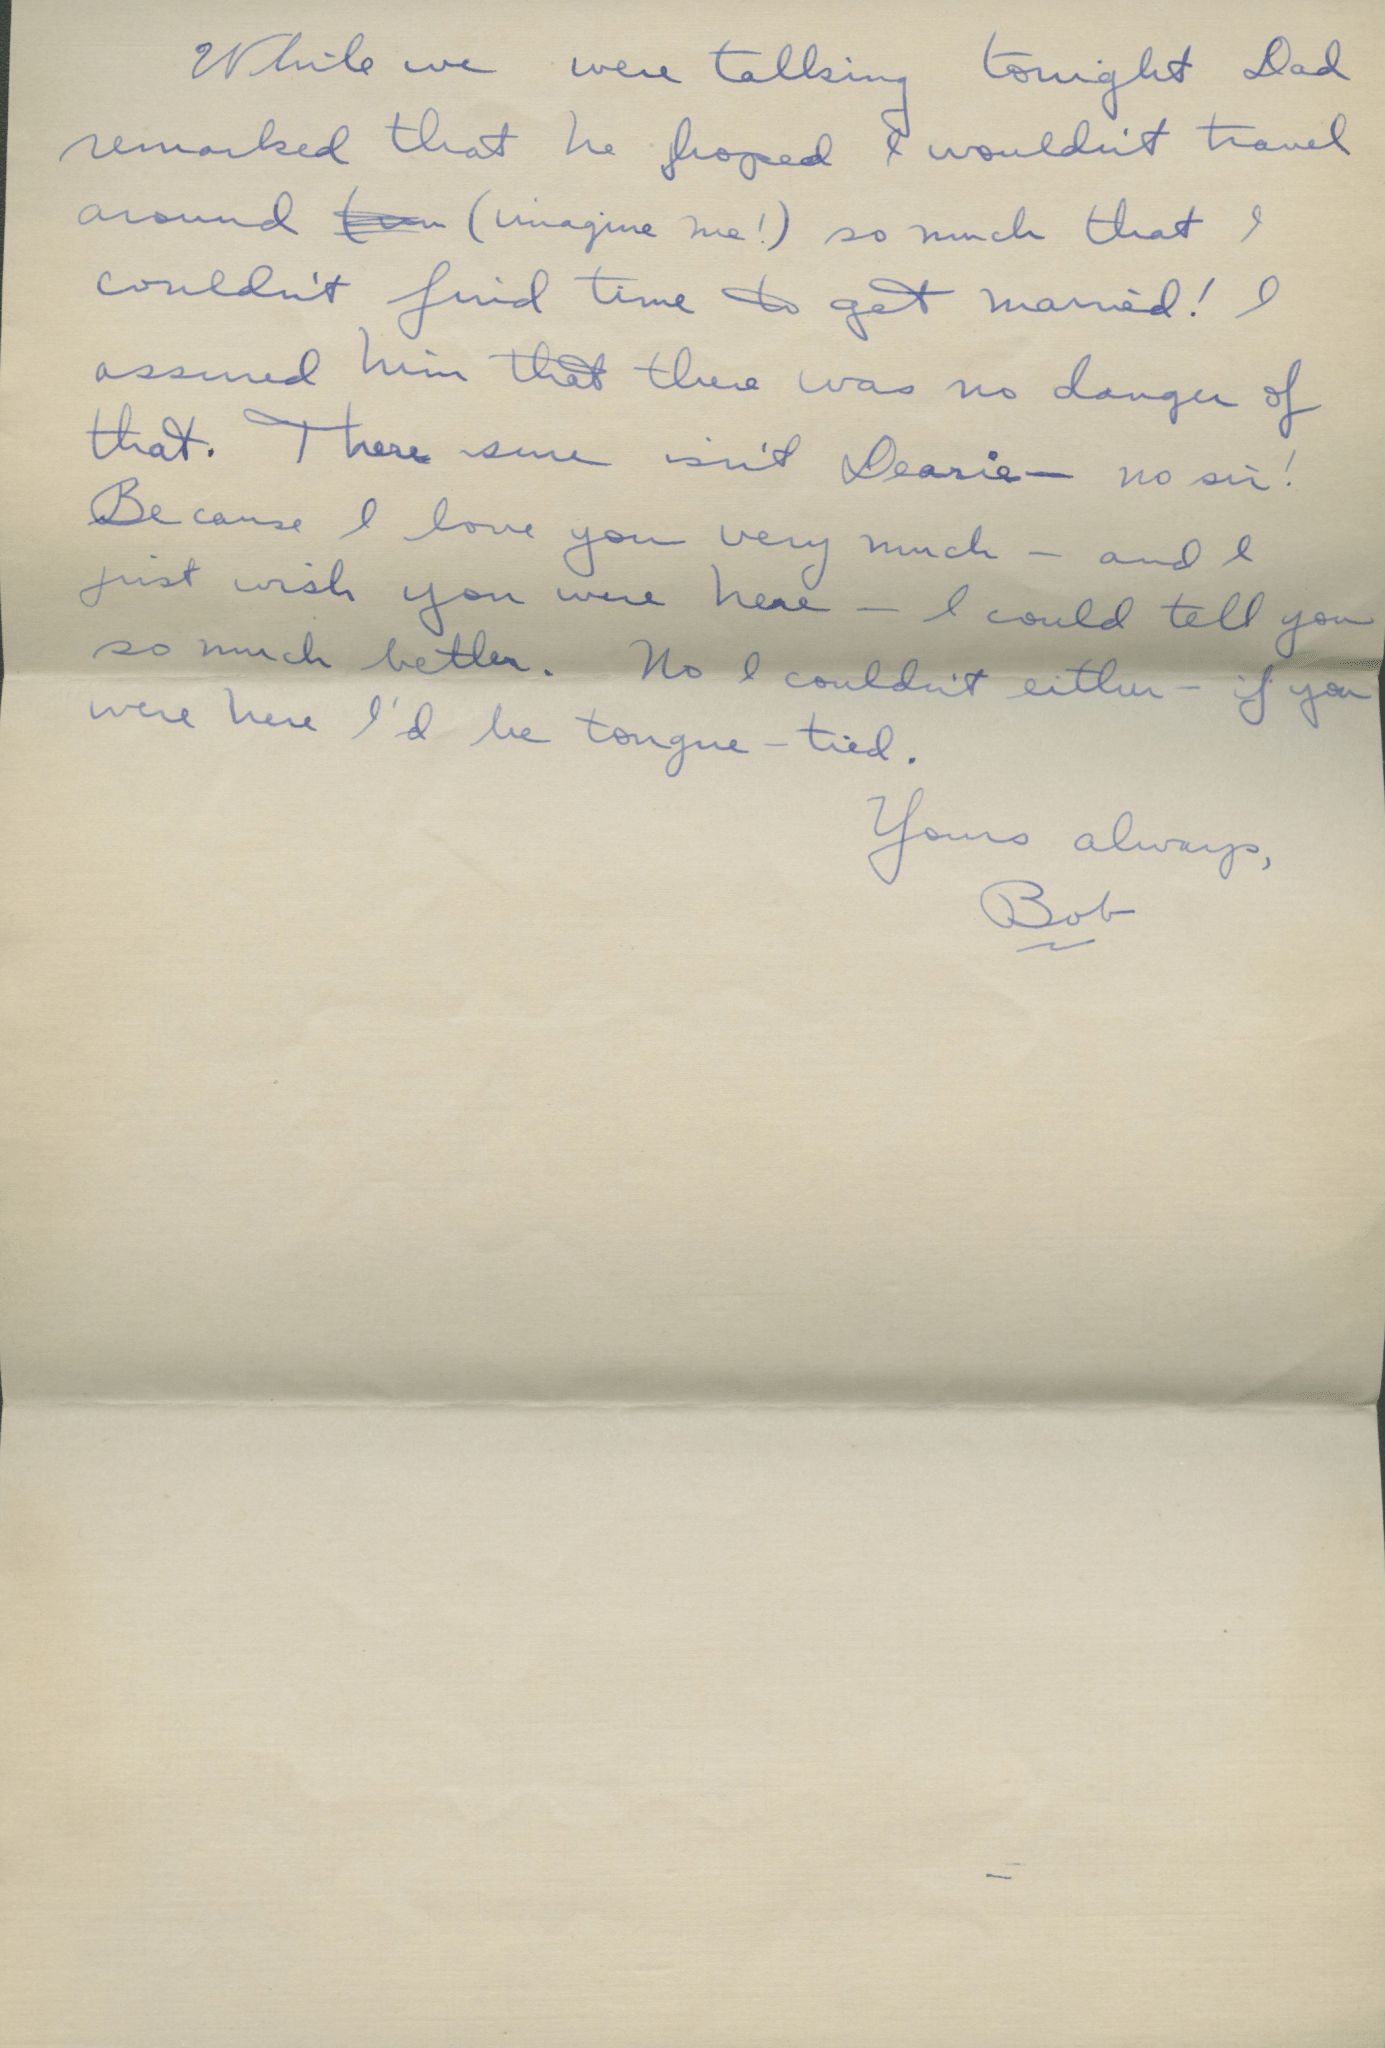 While we were talking tonight Dad
remarked that he hoped I wouldn't travel
around (imagine me!) so much that I
couldn't find time to get married! I
assured him that there was no danger of
that. There sure isn't Dearie— no sir!
Because I love you very much — and I
just wish you were here — I could tell you
so much better. No I couldn't either — if you
were here I'd be tongue-tied.
Yours always,
Bob